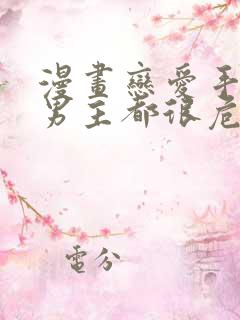 漫畫戀愛手
男主都很危
電分